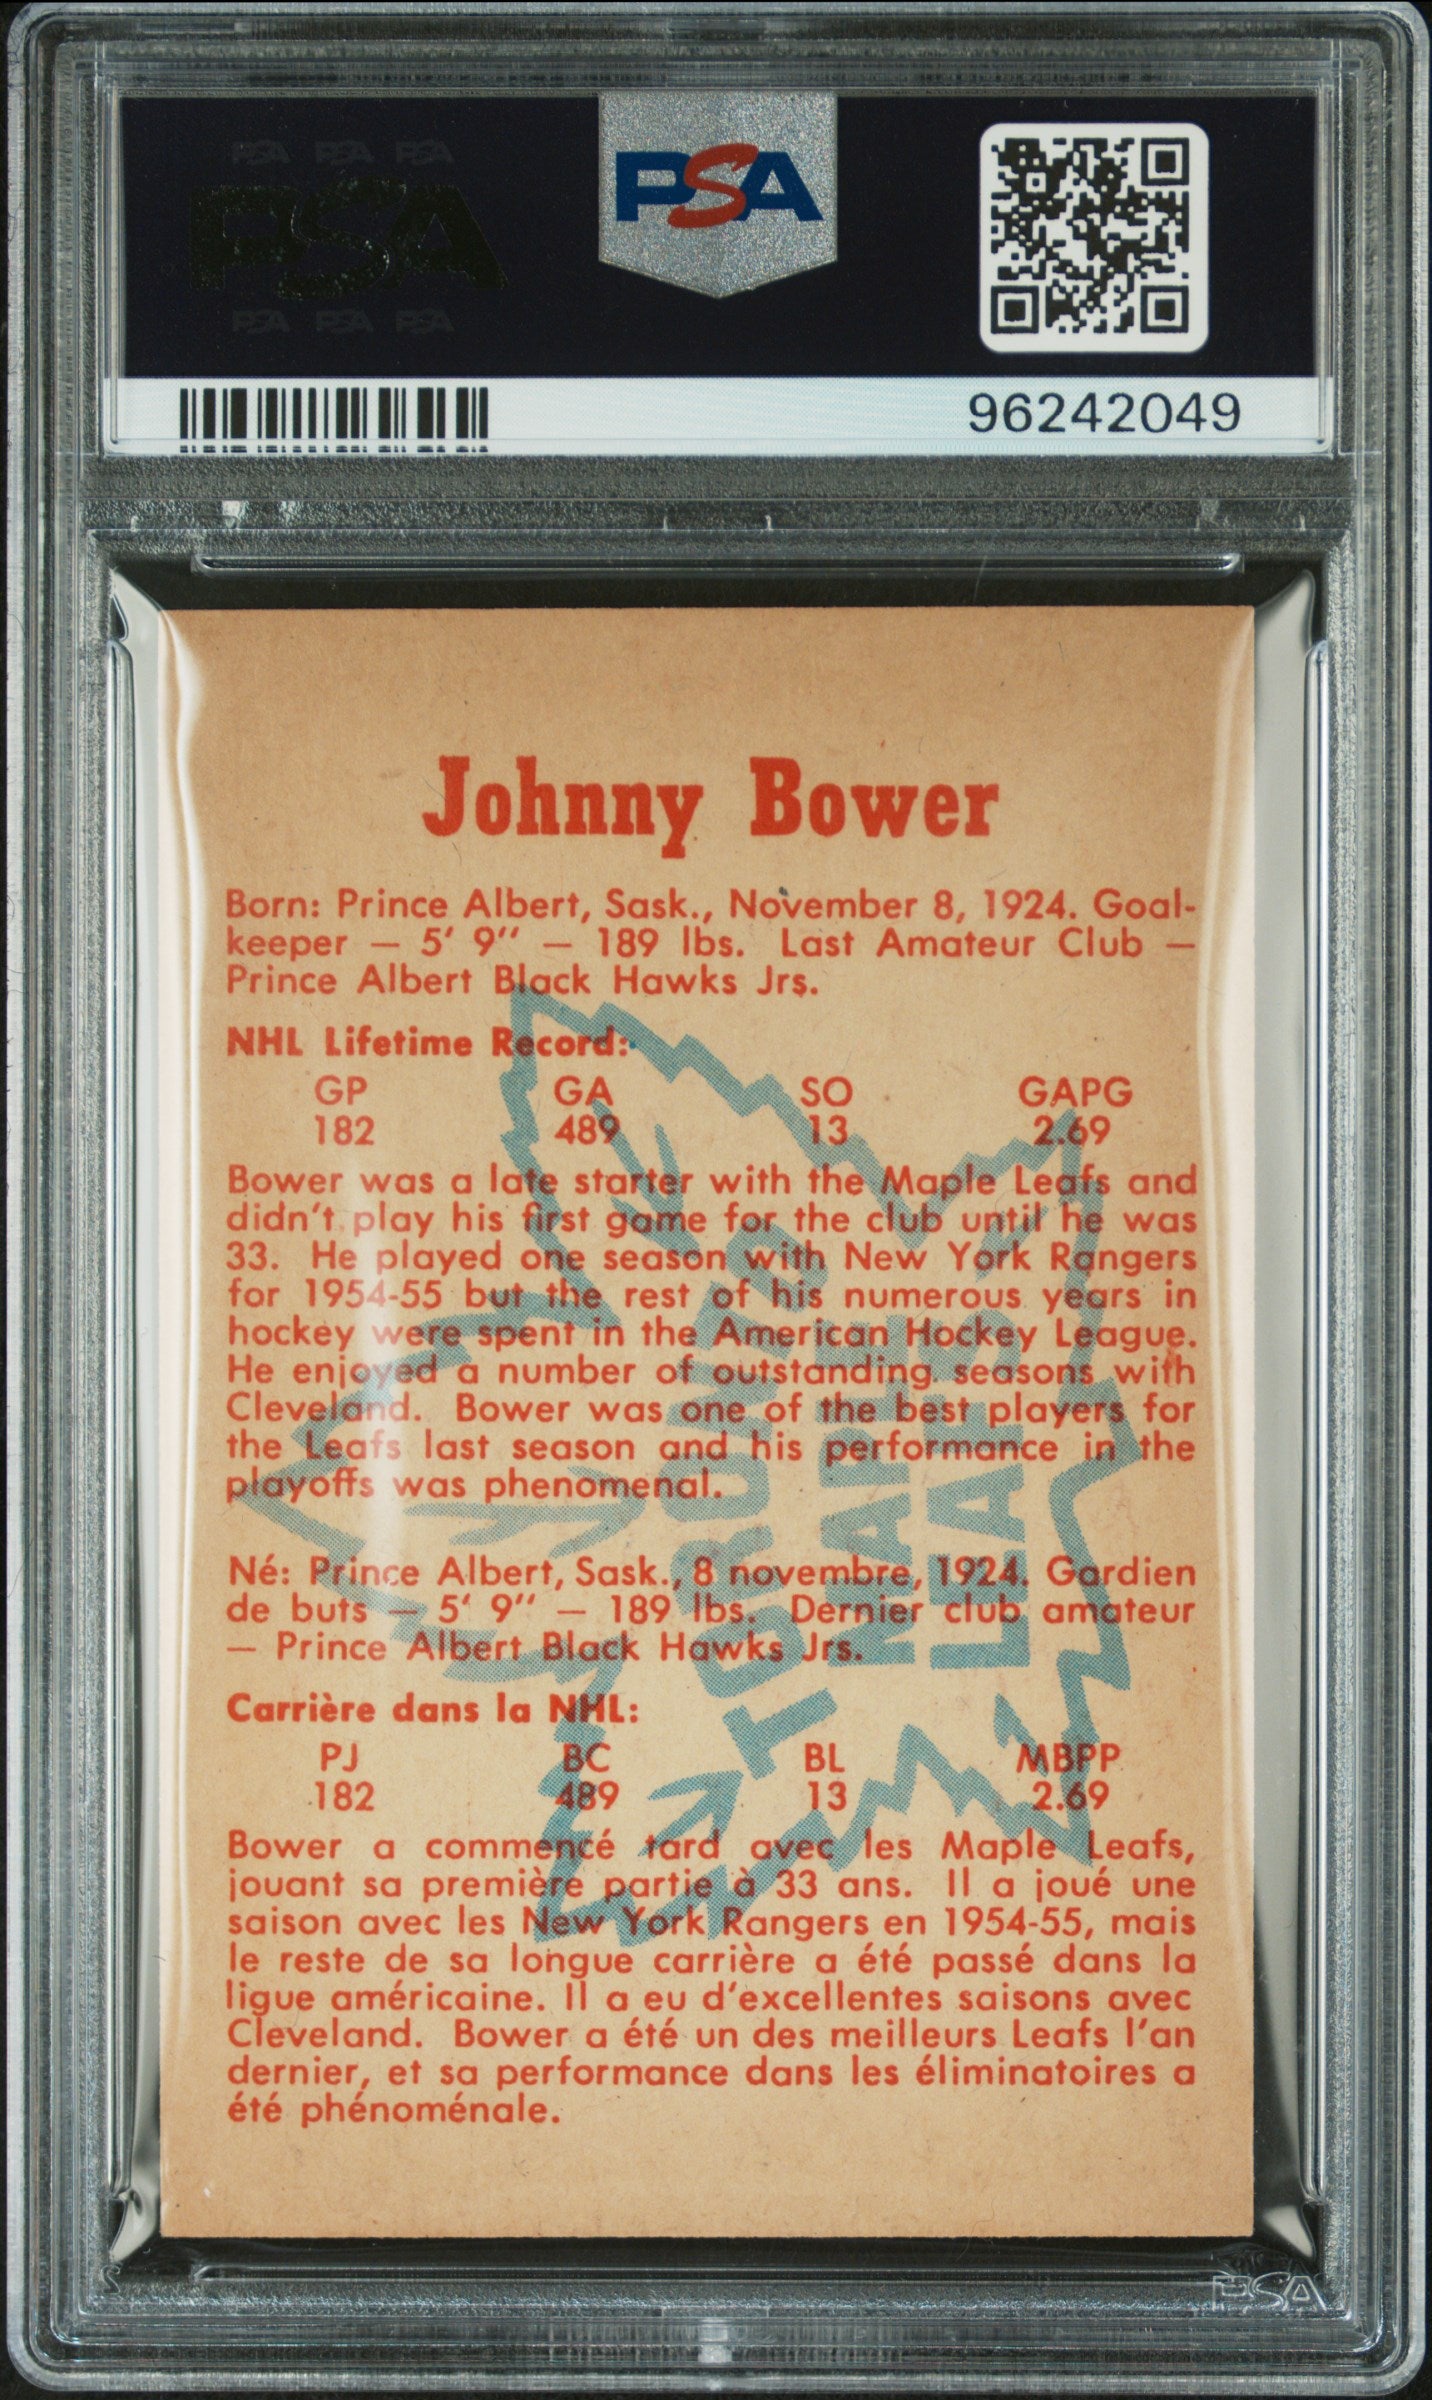 PSA PSA PSA
PSA
PSA PSA PSA
PSA
96242049
Johnny Bower
Born: Prince Albert, Sask., November 8, 1924. Goal-
keeper — 5' 9'' — 189 lbs. Last Amateur Club —
Prince Albert Black Hawks Jrs.
NHL Lifetime Record:
GP GA SO GAPG
182 489 13 2.69
Bower was a late starter with the Maple Leafs and
didn't play his first game for the club until he was
33. He played one season with New York Rangers
for 1954-55 but the rest of his numerous years in
hockey were spent in the American Hockey League.
He enjoyed a number of outstanding seasons with
Cleveland. Bower was one of the best players for
the Leafs last season and his performance in the
playoffs was phenomenal.
Né: Prince Albert, Sask., 8 novembre, 1924. Gardien
de buts — 5' 9'' — 189 lbs. Dernier club amateur
— Prince Albert Black Hawks Jrs.
Carrière dans la NHL:
PJ BC BL MBPP
182 489 13 2.69
Bower a commencé tard avec les Maple Leafs,
jouant sa première partie à 33 ans. Il a joué une
saison avec les New York Rangers en 1954-55, mais
le reste de sa longue carrière a été passé dans la
ligue américaine. Il a eu d'excellentes saisons avec
Cleveland. Bower a été un des meilleurs Leafs l'an
dernier, et sa performance dans les éliminatoires a
été phénoménale.
TORONTO
MAPLE
LEAFS
PSA